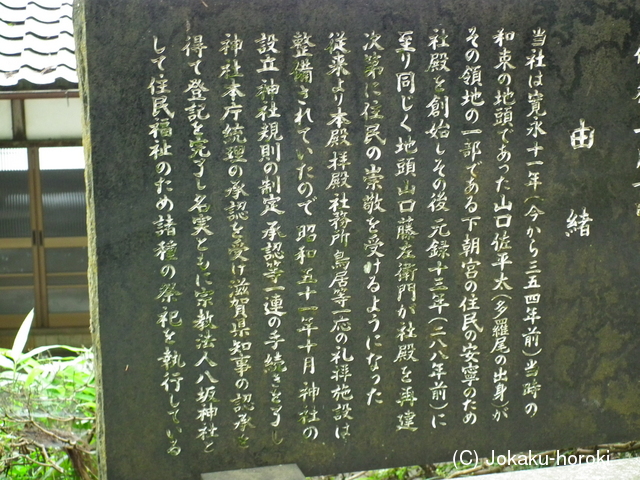 由緒
当社は寛永十一年(今から三五四年前)当時の
和束の地頭であった山口佐平太(多羅尾の出身)が
その領地の一部である下朝宮の住民の安寧のため
社殿を創始しその後元録十三年(二八八年前)に
至り同じく地頭山口藤左衛門が社殿を再建
次第に住民の崇敬を受けるようになった
従来より本殿拝殿社務所鳥居等一応の礼拝施設は
整備されていたので昭和五十一年十月神社の
設立神社規則の制定承認等一連の手続きを了し
神社本庁統理の承認を受け滋賀県知事の認承を
得て登記を完了し名実ともに宗教法人八坂神社と
して住民福祉のため諸種の祭祀を執行している
(C) Jokaku-horoki